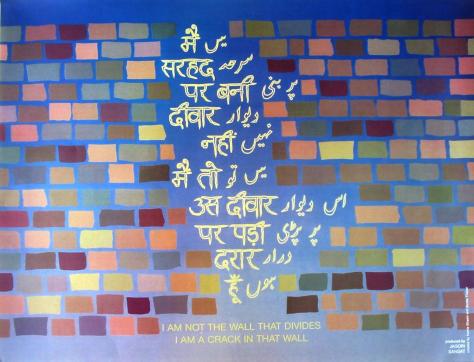 मैं میں
सरहद سرحد
पर बनी پر بنی
दीवार دیوار
नहीं نہیں
मैं तो میں تو
उस दीवार اس دیوار
पर पड़ी پر پڑی
दरार درار
हूँ ہوں
I AM NOT THE WALL THAT DIVIDES
I AM A CRACK IN THAT WALL
produced by
JAGORI
SANGAT